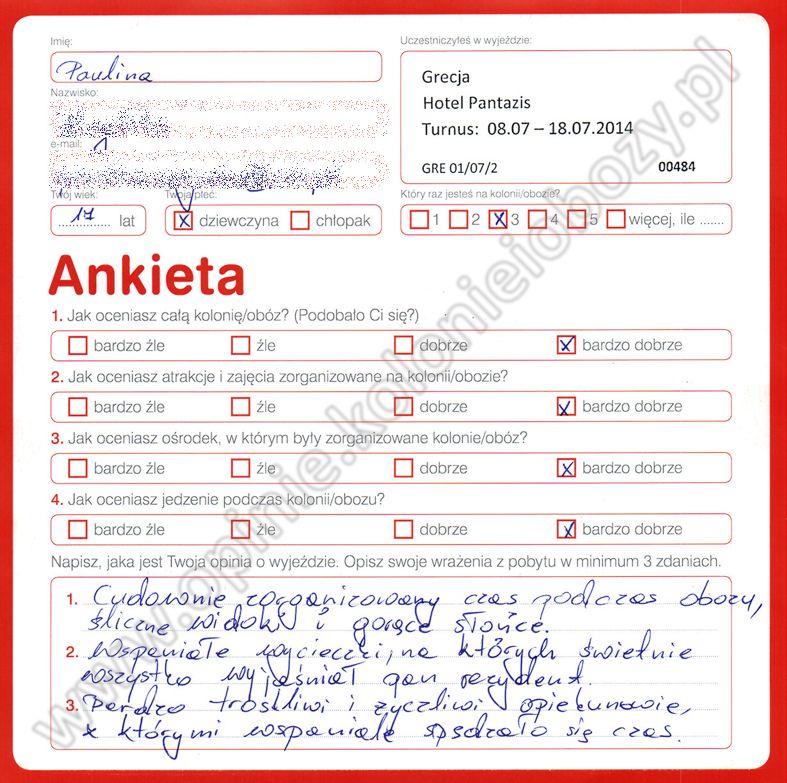 Imię:
Paulina
Nazwisko:
e-mail:
Twój wiek:
17 lat
Twoja płeć:
x dziewczyna chłopak
Uczestniczyłeś w wyjeździe:
Grecja
Hotel Pantazis
Turnus: 08.07 – 18.07.2014
GRE 01/07/2 00484
Który raz jesteś na kolonii/obozie?
1 2 x 3 4 5 więcej, ile .......
Ankieta
1. Jak oceniasz całą kolonię/obóz? (Podobało Ci się?)
bardzo źle źle dobrze x bardzo dobrze
2. Jak oceniasz atrakcje i zajęcia zorganizowane na kolonii/obozie?
bardzo źle źle dobrze x bardzo dobrze
3. Jak oceniasz ośrodek, w którym były zorganizowane kolonie/obóz?
bardzo źle źle dobrze x bardzo dobrze
4. Jak oceniasz jedzenie podczas kolonii/obozu?
bardzo źle źle dobrze x bardzo dobrze
Napisz, jaka jest Twoja opinia o wyjeździe. Opisz swoje wrażenia z pobytu w minimum 3 zdaniach.
1. Cudownie zorganizowany czas podczas obozu,
śliczne widoki i gorące słońce.
2. Wspaniałe wycieczki, na których świetnie
wszystko wyjaśniał pan rezydent.
3. Bardzo troskliwi i życzliwi opiekunowie,
z którymi wspaniale spędzało się czas.
www.opinie.kolonieiobozy.pl